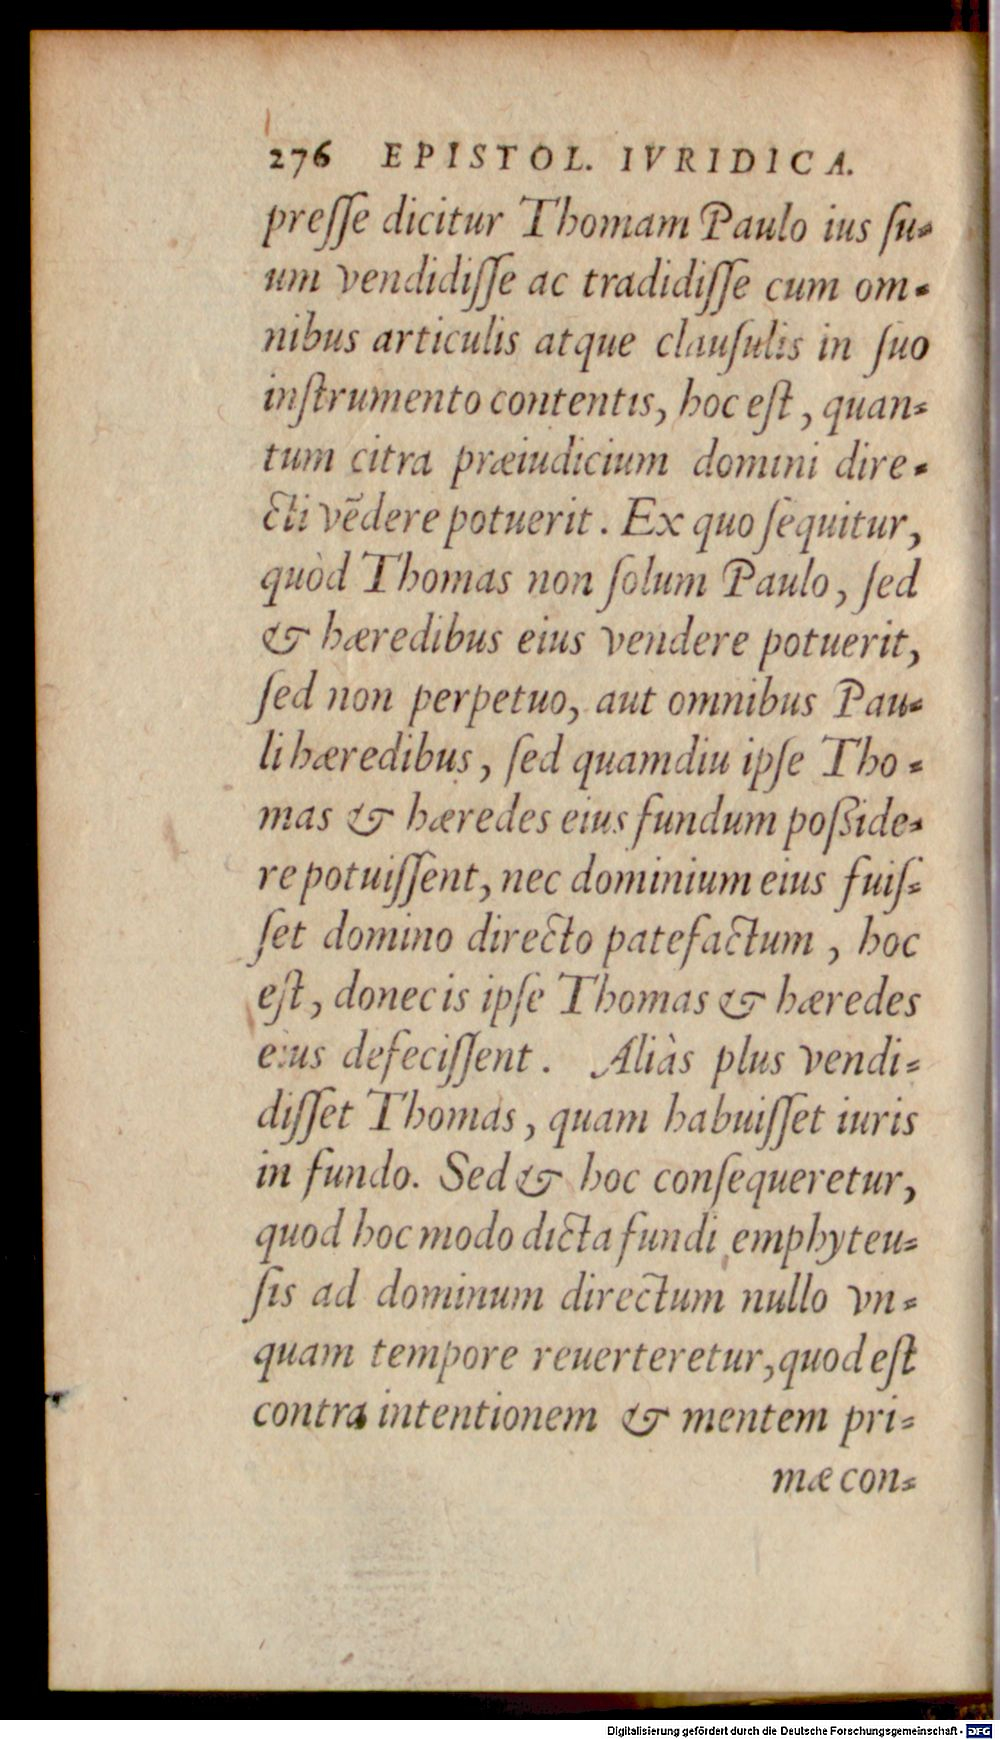 276 EPISTOL. IVRIDICA.
preſſe dicitur Thomam Paulo ius ſu-
um vendidiſſe ac tradidiſſe cum om-
nibus articulis atque clauſulis in ſuo
inſtrumento contentis, hoc eſt, quan-
tum citra præiudicium domini dire-
cti vẽdere potuerit. Ex quo ſequitur,
quòd Thomas non ſolum Paulo, ſed
& hæredibus eius vendere potuerit,
ſed non perpetuo, aut omnibus Pau-
li hæredibus, ſed quamdiu ipſe Tho-
mas & hæredes eius fundum poſside-
re potuiſſent, nec dominium eius fuiſ-
ſet domino directo patefactum, hoc
eſt, donec is ipſe Thomas & hæredes
eius defeciſſent. Aliàs plus vendi-
diſſet Thomas, quam habuiſſet iuris
in fundo. Sed & hoc conſequeretur,
quod hoc modo dicta fundi emphyteu-
ſis ad dominum directum nullo vn-
quam tempore reuerteretur, quod eſt
contra intentionem & mentem pri-
mæ con-
Digitalisierung gefördert durch die Deutsche Forschungsgemeinschaft - DFG